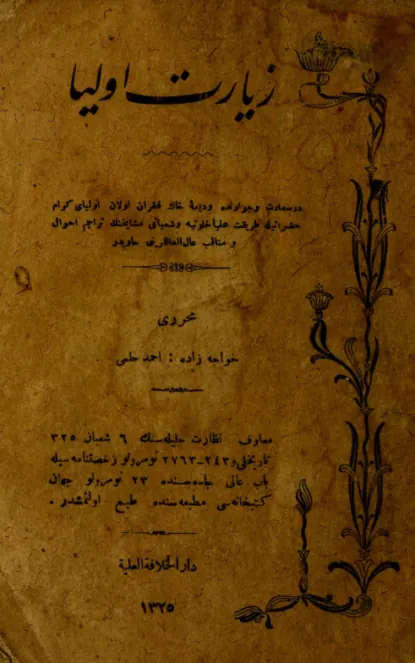 زيارت اوليا
درسعادت وجوارنده وديعهٔ خاك غفران اولان اولياى كرام
حضراتيله طريقت عليهٔ خلوتيه وشعبانى مشايخنك تراجم احوال
و مناقب عال‌العاليرينى حاويدر
محررى
خواجه زاده : احمد حلمى
معارف نظارت جليله‌سنك ٦ شعبان ٣٢٥
تاريخلى و ٢٤٣-٢٧٦٣ نومرولو رخصتنامه‌سيله
باب عالى جاده‌سنده ٢٣ نومرولو جهان
كتبخانه‌سى مطبعه‌سنده طبع اولنمشدر .
دار الخلافة العلية
١٣٢٥